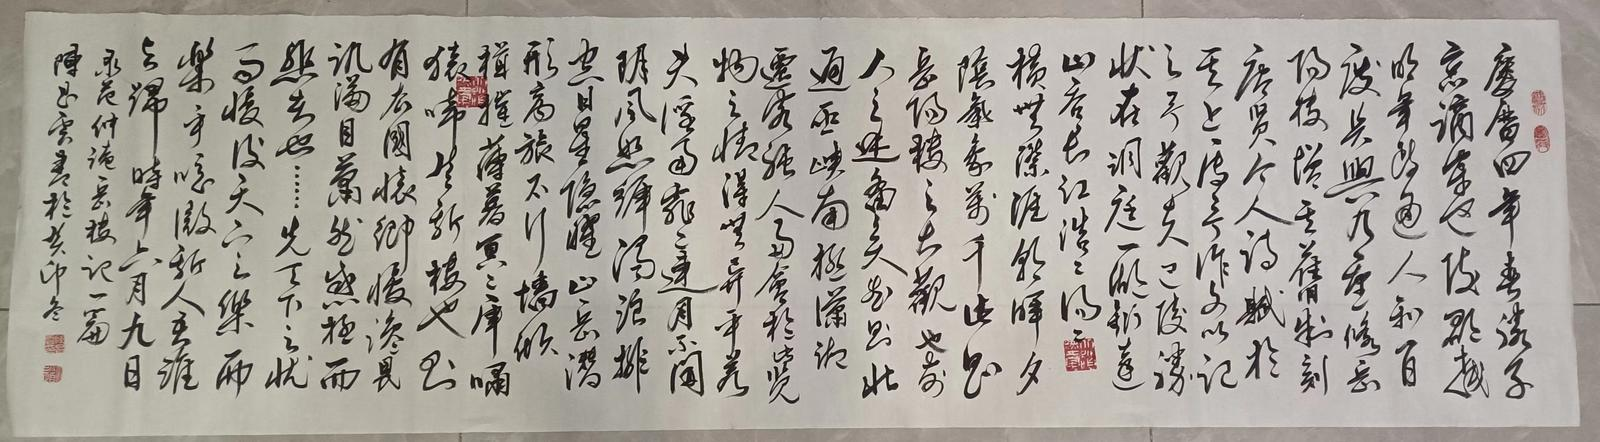 慶曆四年春滕子
京謫守巴陵郡越
明年政通人和百
廢具興乃重修岳
陽樓增其舊制刻
唐賢今人詩賦於
其上屬予作文以記
之予觀夫巴陵勝
狀在洞庭一湖銜遠
山吞長江浩浩湯湯
橫無際涯朝暉夕
陰氣象萬千此則
岳陽樓之大觀也前
人之述備矣然則北
通巫峽南極瀟湘
遷客騷人多會於此覽
物之情得無異乎若
夫淫雨霏霏連月不開
陰風怒號濁浪排
空日星隱耀山岳潛
形商旅不行檣傾
楫摧薄暮冥冥虎嘯
猿啼登斯樓也則
有去國懷鄉憂讒畏
譏滿目蕭然感極而
悲者也……先天下之憂
而憂後天下之樂而
樂乎噫微斯人吾誰
與歸時年六月九日
录范仲淹岳樓記一篇
陳雲書於癸卯冬